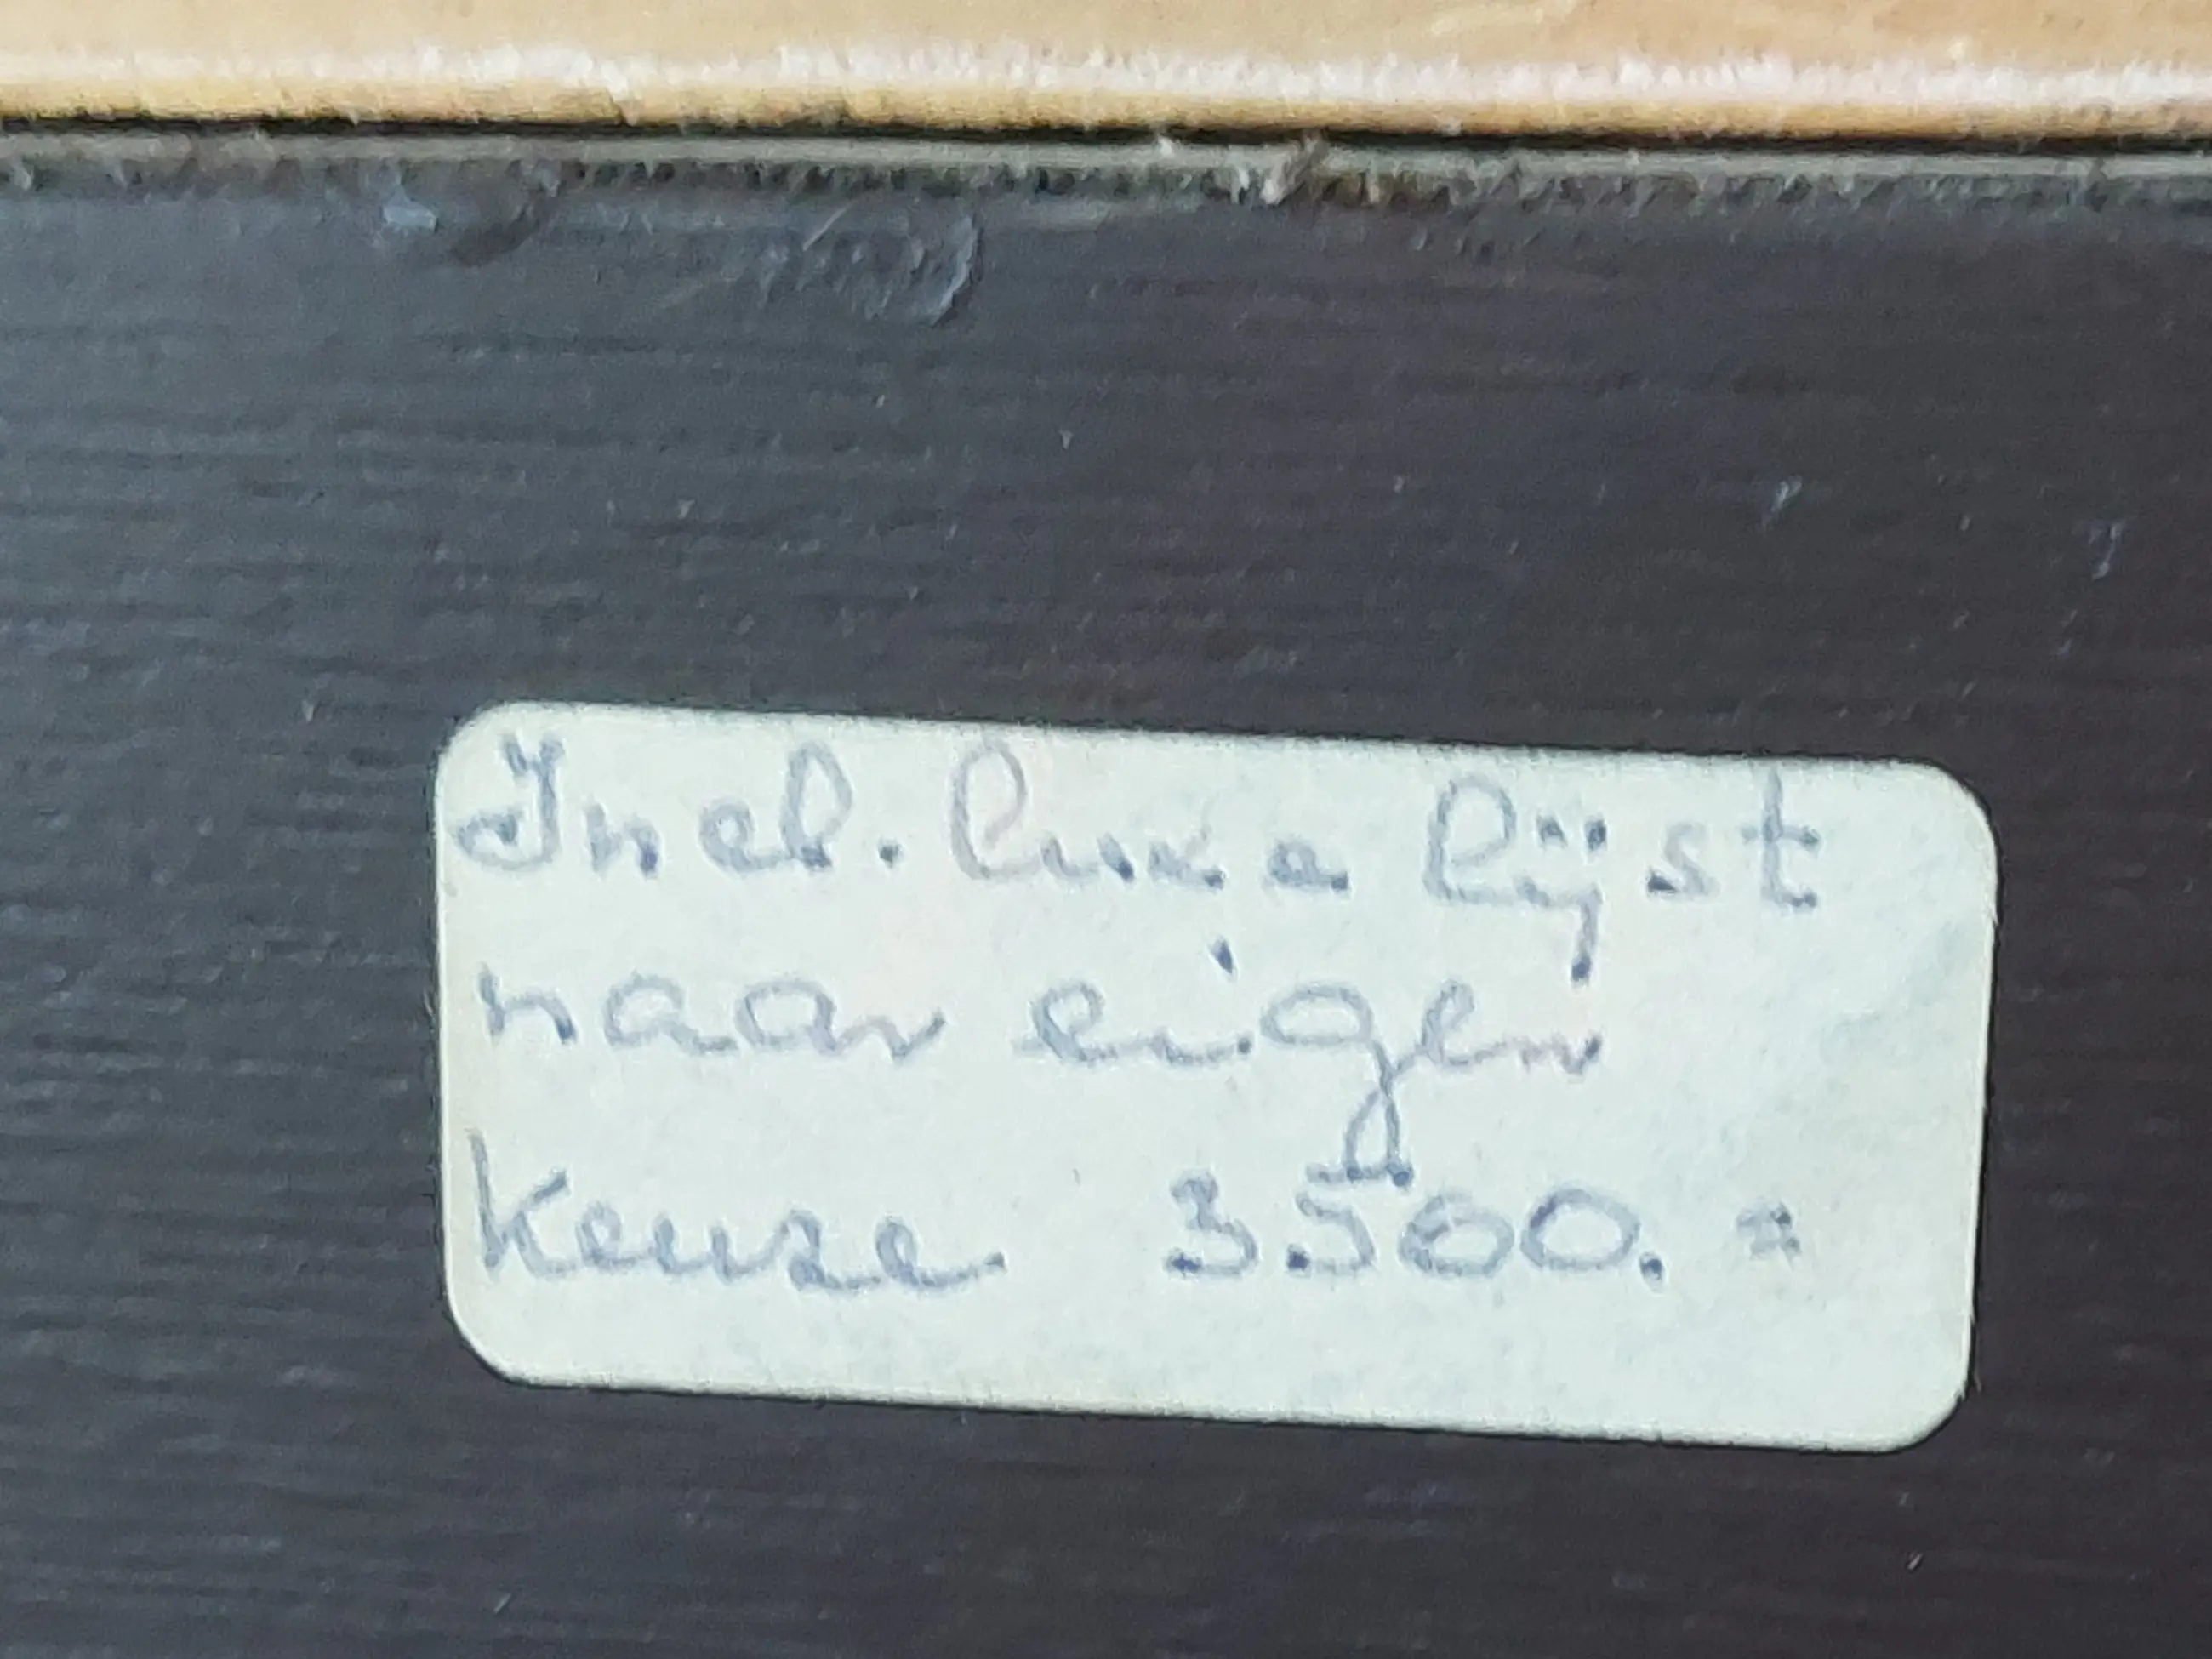 Incl. luxe lijst
naar eigen
keuze 3500.=